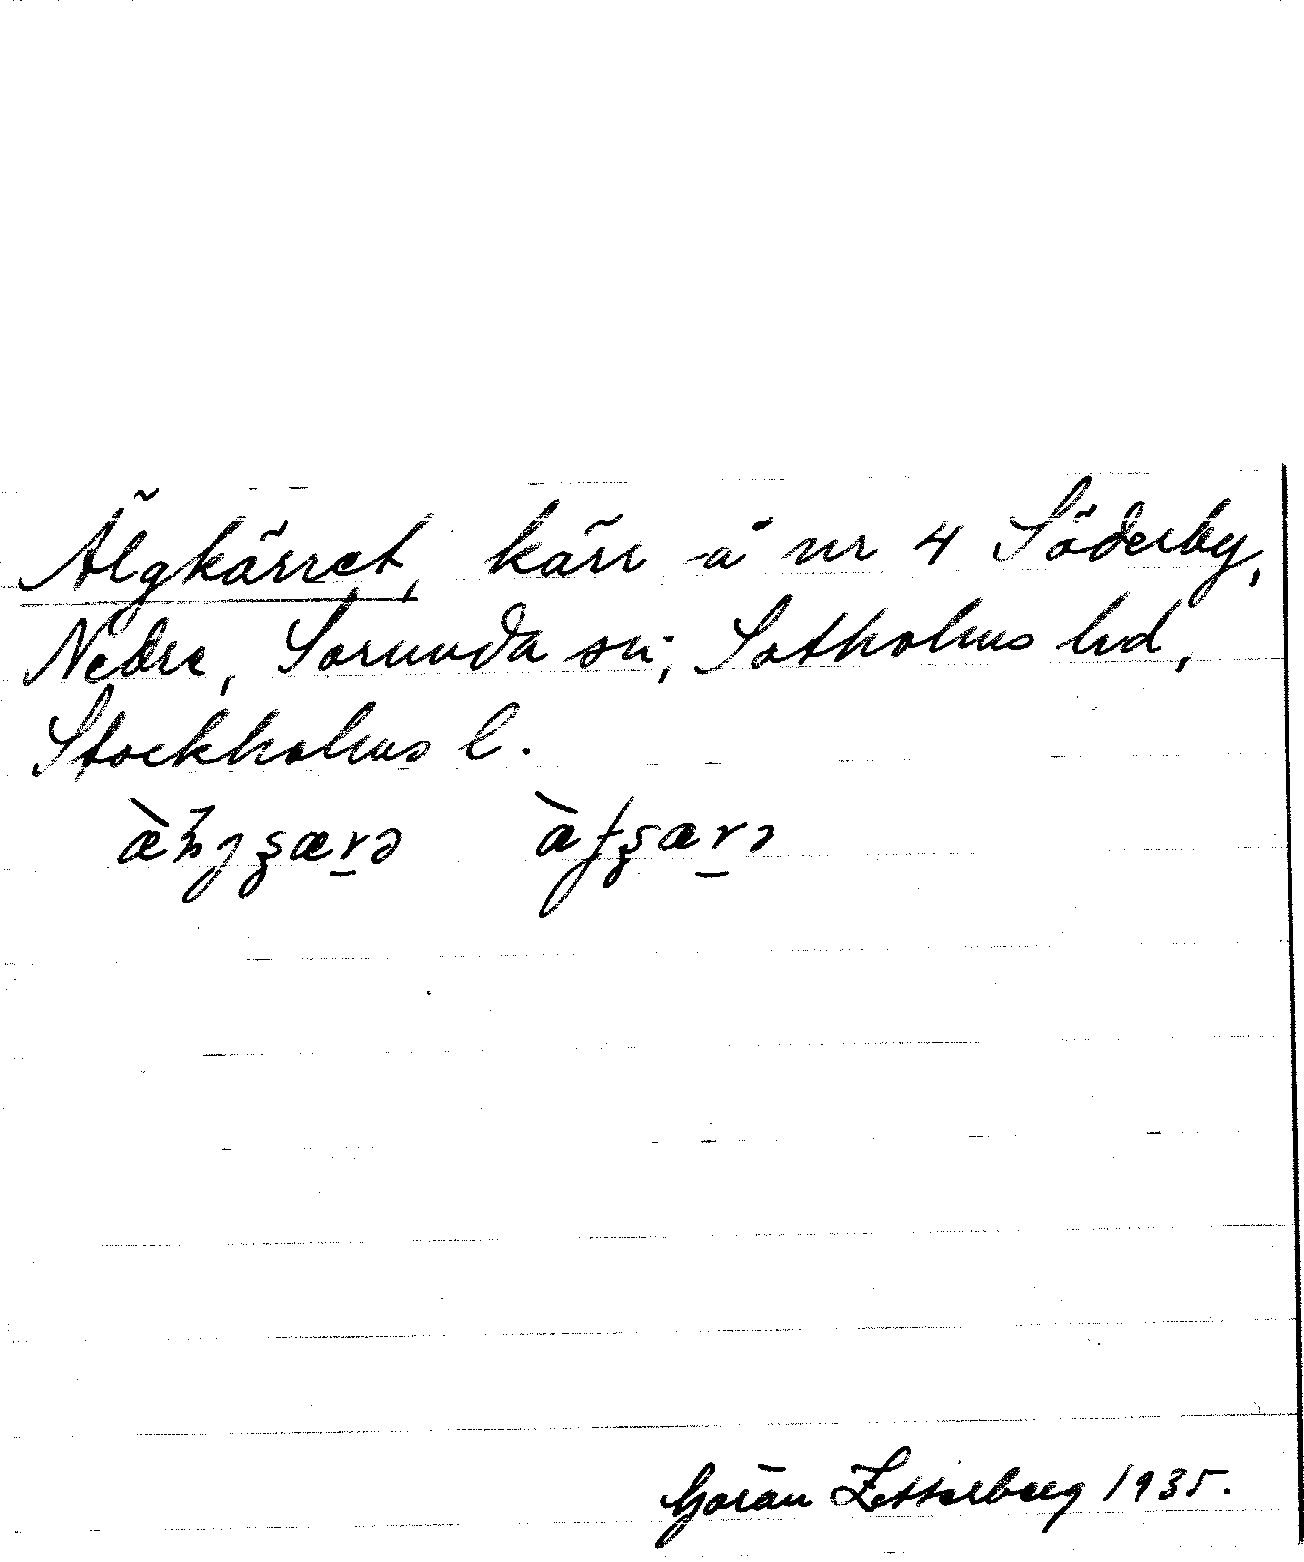 Älgkärret, kärr å nr 4 Söderby,
Nedre, Sorunda sn, Sotholms hd,
Stockholms l.
Göran Zetterberg 1935.